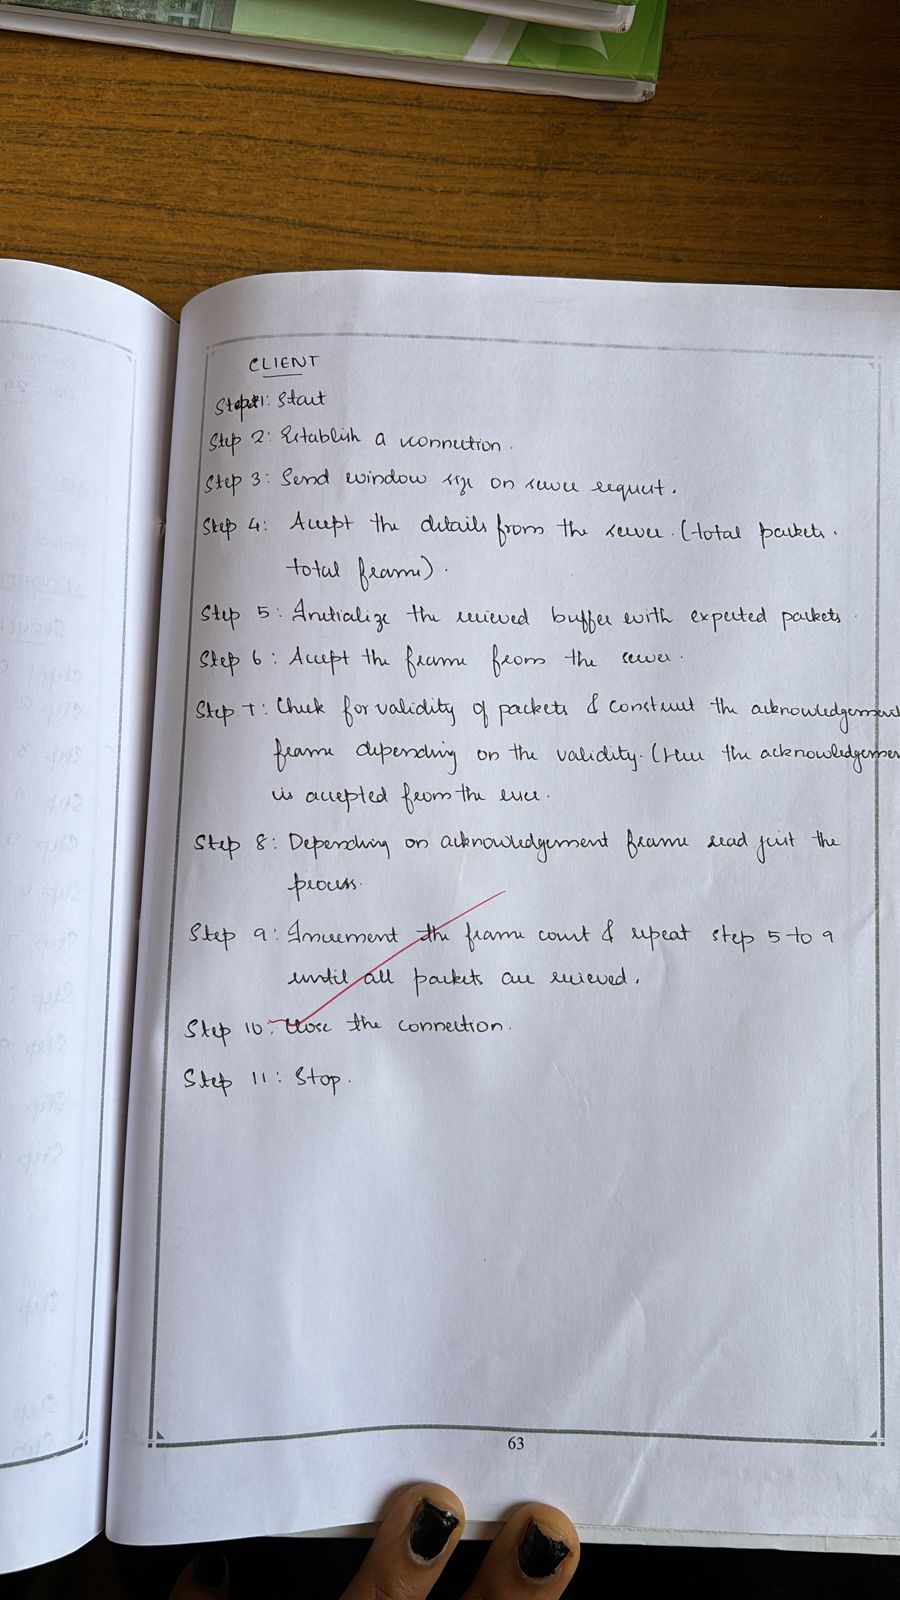 CLIENT
Step 1: Start
Step 2: Establish a connection.
Step 3: Send window size on server request.
Step 4: Accept the details from the server. (total packets.
total frame).
Step 5: Initialize the recieved buffer with expected packets.
Step 6: Accept the frame from the server.
Step 7: Check for validity of packets & construct the acknowledgement
frame depending on the validity. (Here the acknowledgemen
is accepted from the user.
Step 8: Depending on acknowledgement frame the
process.
Step 9: Increment the frame count & repeat step 5 to 9
until all packets are recieved.
Step 10: Close the connection.
Step 11: Stop.
63